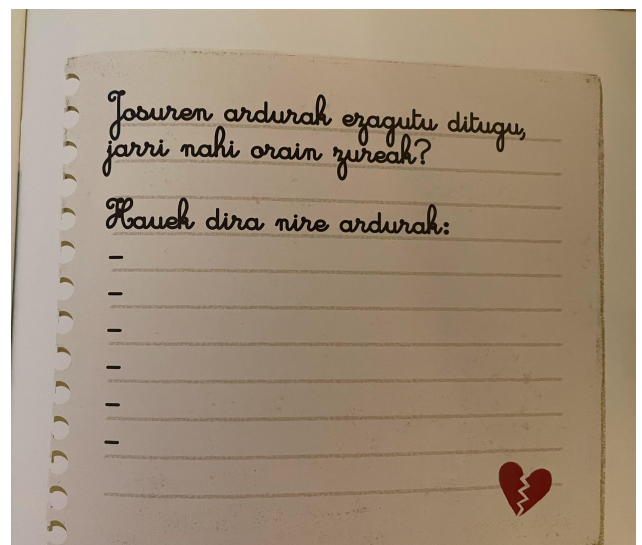 Josuren ardurak ezagutu ditugu,
jarri nahi orain zureak?
Hauek dira nire ardurak:
-
-
-
-
-
-